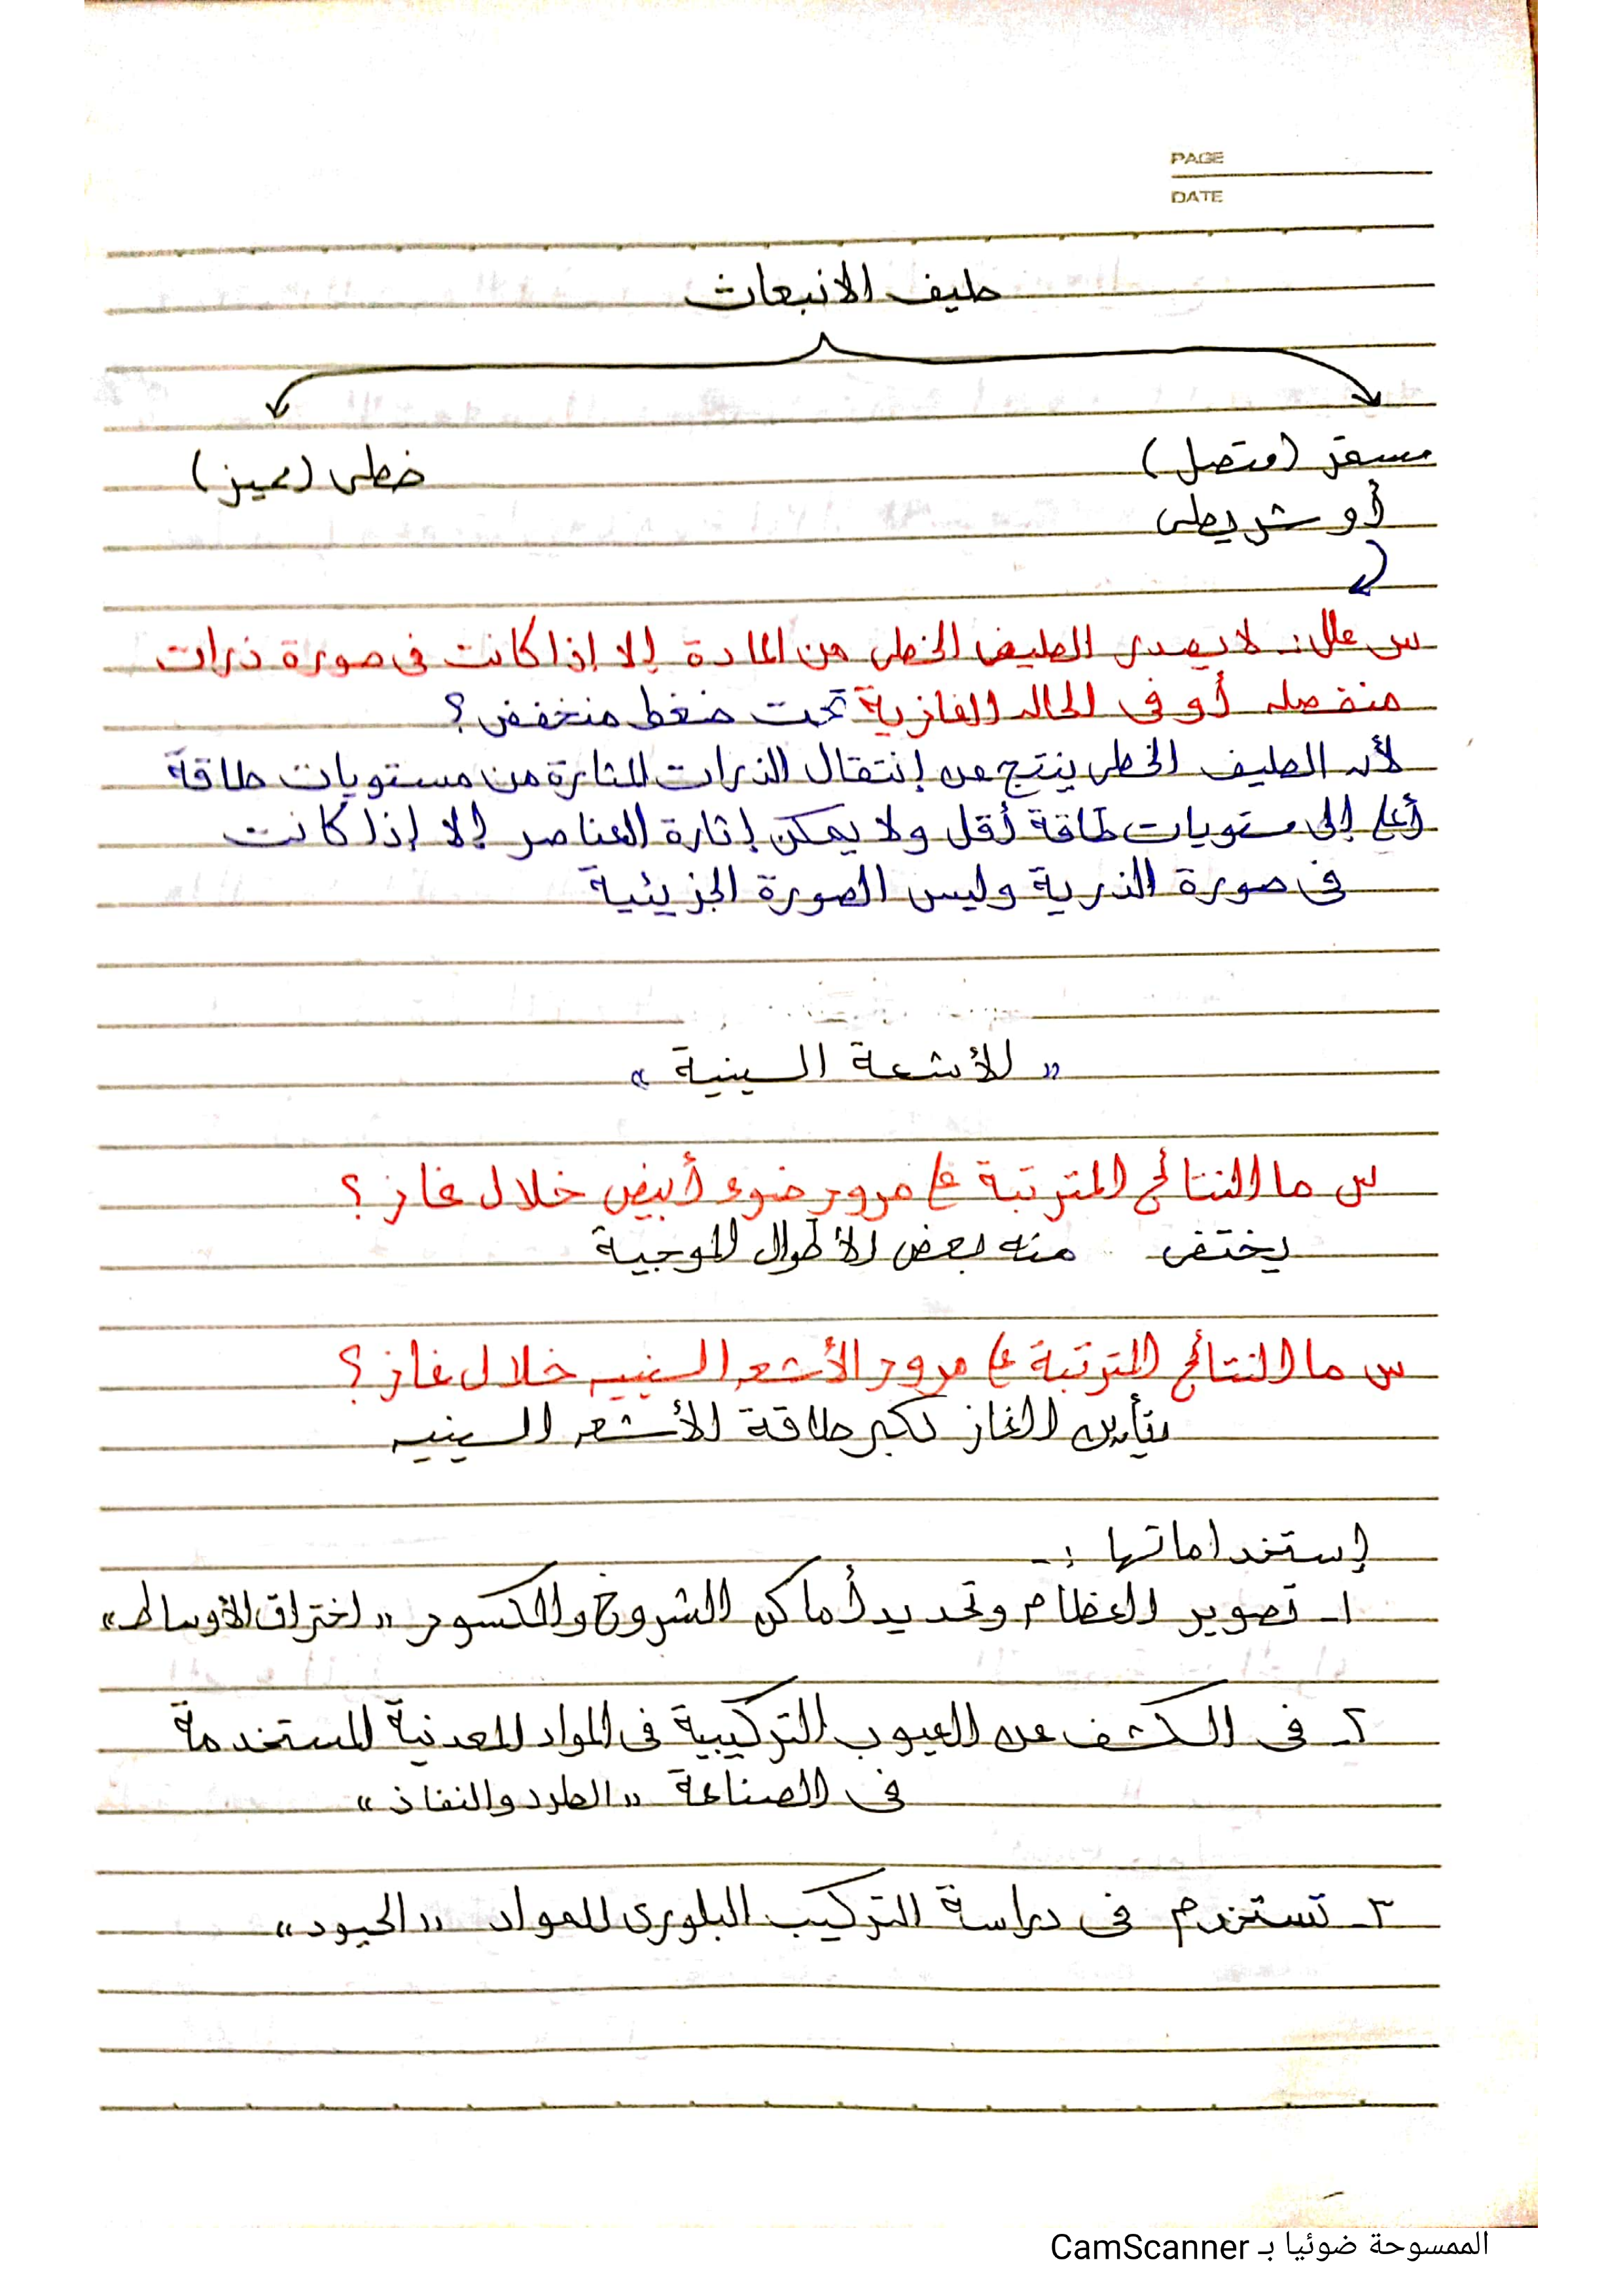 PAGE
DATE
طيف الانبعاث
مستمر (متصل)
خطى (مميز)
أو شريطى
س علل :ـ لا يصدر الطيف الخطى من المادة إلا إذا كانت فى صورة ذرات
منفصله أو فى الحاله الغازية تحت ضغط منخفض ؟
لأن الطيف الخطى ينتج عن إنتقال الذرات المثارة من مستويات طاقة
أعلى إلى مستويات طاقة أقل ولا يمكن إثارة العناصر إلا إذا كانت
فى صورة الذرية وليس الصورة الجزيئية
« الأشعة السينية »
س ما النتائج المترتبة على مرور ضوء أبيض خلال غاز ؟
يختفى منه بعض الأطوال الموجية
س ما النتائج المترتبة على مرور الأشعه السينيه خلال غاز ؟
يتأين الغاز لكبر طاقة الأشعه السينيه
إستخداماتها :ـ
١ـ تصوير العظام وتحديد أماكن الشروخ والكسور « اختراق الأوساط »
٢ـ فى الكشف عن العيوب التركيبية فى المواد المعدنية المستخدمة
فى الصناعة « الطرد والنفاذ »
٣ـ تستخدم فى دراسة التركيب البلورى للمواد « الحيود »
الممسوحة ضوئيا بـ CamScanner